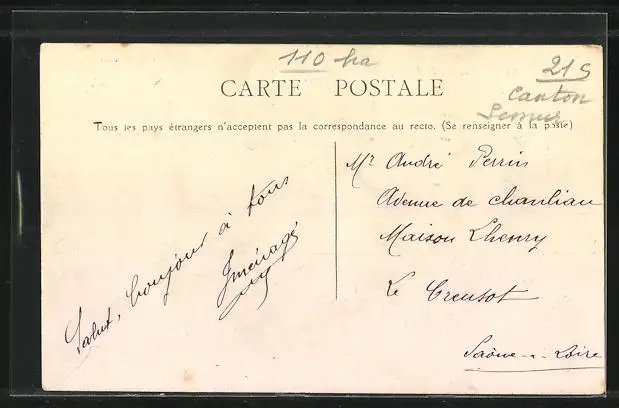 110 ha
21 S
CARTE POSTALE
Canton
Semur
Tous les pays étrangers n'acceptent pas la correspondance au recto. (Se renseigner à la poste)
Salut, bonjour à tous
Mr André Perrin
Avenue de chanliau
Maison Lhenry
Le Creusot
Saône-a-Loire